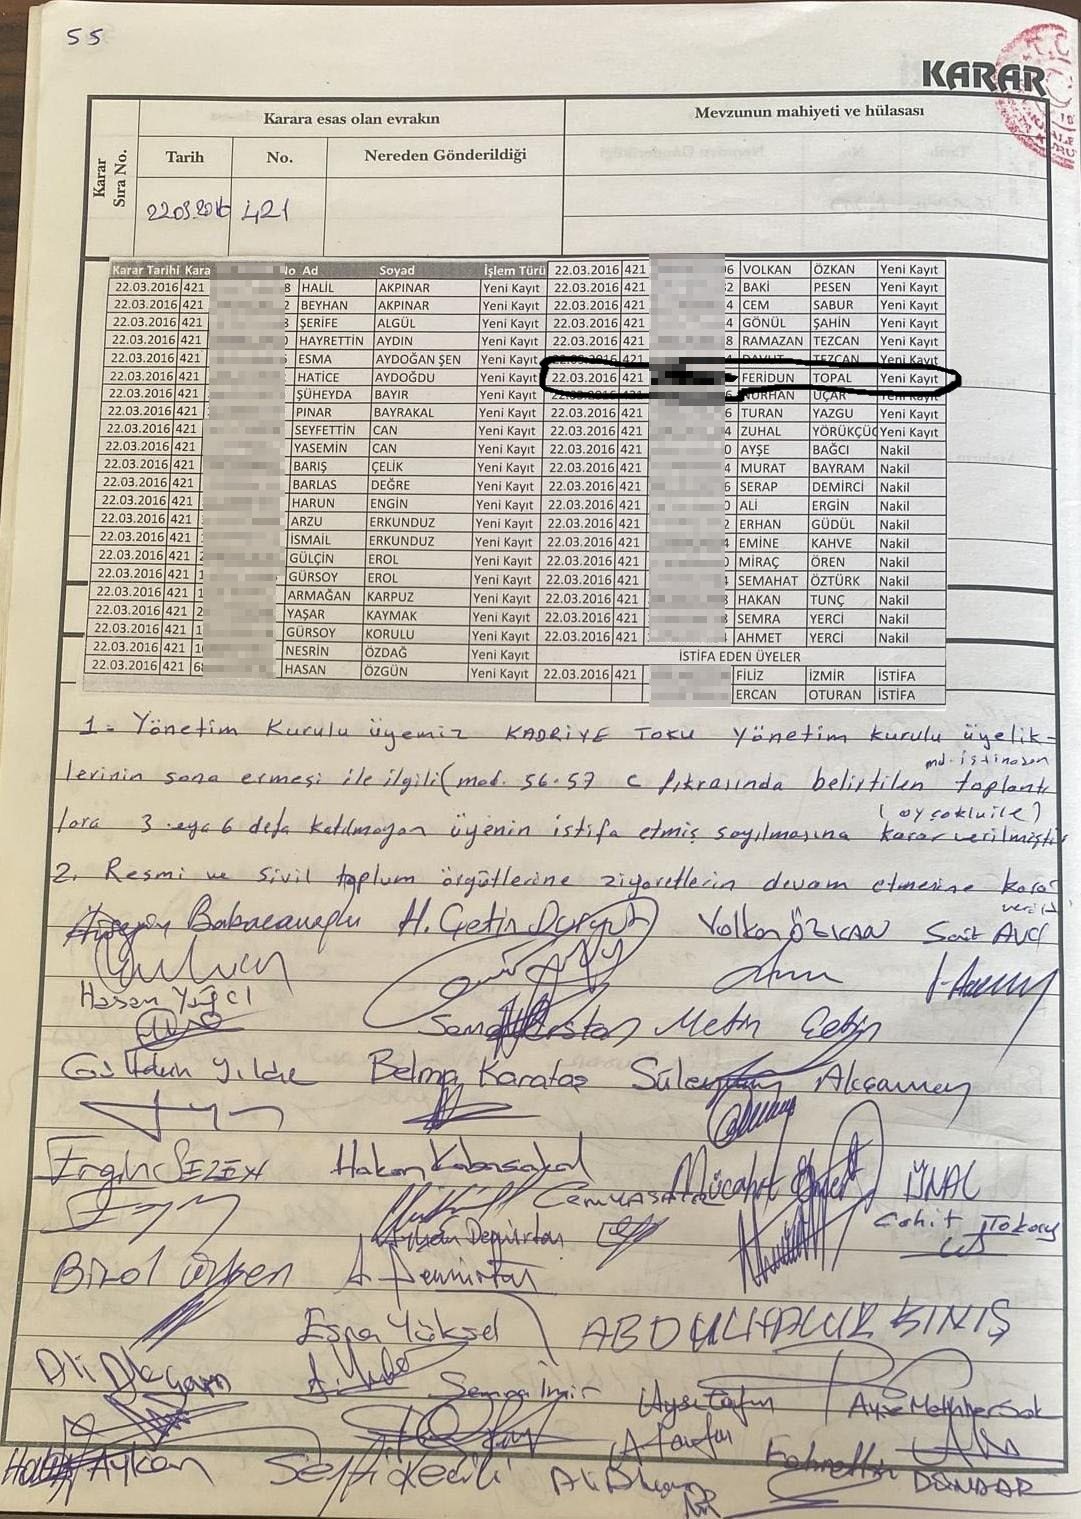 55
KARAR
Karar Sıra No.
Karara esas olan evrakın
Mevzunun mahiyeti ve hülasası
Tarih No. Nereden Gönderildiği
22.03.2016 421
Karar Tarihi Kara No Ad Soyad İşlem Türü
22.03.2016 421 8 HALİL AKPINAR Yeni Kayıt
22.03.2016 421 2 BEYHAN AKPINAR Yeni Kayıt
22.03.2016 421 8 ŞERİFE ALGÜL Yeni Kayıt
22.03.2016 421 0 HAYRETTİN AYDIN Yeni Kayıt
22.03.2016 421 ESMA AYDOĞAN ŞEN Yeni Kayıt
22.03.2016 421 HATİCE AYDOĞDU Yeni Kayıt
22.03.2016 421 ŞÜHEYDA BAYIR Yeni Kayıt
22.03.2016 421 PINAR BAYRAKAL Yeni Kayıt
22.03.2016 421 SEYFETTİN CAN Yeni Kayıt
22.03.2016 421 YASEMİN CAN Yeni Kayıt
22.03.2016 421 BARIŞ ÇELİK Yeni Kayıt
22.03.2016 421 BARLAS DEĞRE Yeni Kayıt
22.03.2016 421 HARUN ENGİN Yeni Kayıt
22.03.2016 421 ARZU ERKUNDUZ Yeni Kayıt
22.03.2016 421 İSMAİL ERKUNDUZ Yeni Kayıt
22.03.2016 421 GÜLÇİN EROL Yeni Kayıt
22.03.2016 421 1 GÜRSOY EROL Yeni Kayıt
22.03.2016 421 1 ARMAĞAN KARPUZ Yeni Kayıt
22.03.2016 421 2 YAŞAR KAYMAK Yeni Kayıt
22.03.2016 421 1 GÜRSOY KORULU Yeni Kayıt
22.03.2016 421 NESRİN ÖZDAĞ Yeni Kayıt
22.03.2016 421 68 HASAN ÖZGÜN Yeni Kayıt
22.03.2016 421 06 VOLKAN ÖZKAN Yeni Kayıt
22.03.2016 421 32 BAKİ PESEN Yeni Kayıt
22.03.2016 421 4 CEM SABUR Yeni Kayıt
22.03.2016 421 4 GÖNÜL ŞAHİN Yeni Kayıt
22.03.2016 421 8 RAMAZAN TEZCAN Yeni Kayıt
22.03.2016 421 4 DAVUT TEZCAN Yeni Kayıt
22.03.2016 421 FERİDUN TOPAL Yeni Kayıt
22.03.2016 421 6 NURHAN UÇAR Yeni Kayıt
22.03.2016 421 6 TURAN YAZGU Yeni Kayıt
22.03.2016 421 4 ZUHAL YÖRÜKÇÜO Yeni Kayıt
22.03.2016 421 0 AYŞE BAĞCI Nakil
22.03.2016 421 4 MURAT BAYRAM Nakil
22.03.2016 421 6 SERAP DEMİRCİ Nakil
22.03.2016 421 0 ALİ ERGİN Nakil
22.03.2016 421 2 ERHAN GÜDÜL Nakil
22.03.2016 421 4 EMİNE KAHVE Nakil
22.03.2016 421 0 MİRAÇ ÖREN Nakil
22.03.2016 421 4 SEMAHAT ÖZTÜRK Nakil
22.03.2016 421 8 HAKAN TUNÇ Nakil
22.03.2016 421 8 SEMRA YERCİ Nakil
22.03.2016 421 AHMET YERCİ Nakil
İSTİFA EDEN ÜYELER
22.03.2016 421 FİLİZ İZMİR İSTİFA
ERCAN OTURAN İSTİFA
1- Yönetim Kurulu üyemiz KADRİYE TOKU yönetim kurulu üyelik-
md. istinaden
lerinin sona ermesi ile ilgili (mad. 56-57 c fıkrasında belirtilen toplantı
(oy çokluile)
lara 3 veya 6 defa katılmayan üyenin istifa etmiş sayılmasına karar verilmiştir
2. Resmi ve sivil toplum örgütlerine ziyaretlerin devam etmesine karar
verildi
Hüseyin Babacanoğlu H. Çetin Durgut Volkan ÖZKAN Sait AVCI
Hasan Yağcı
Metin Çetin
Gülfidan Yıldız Belma Karataş Süleyman Akçamey
Ergin SEZEN Hakan Kabasakal Mücahit ÜNAL
Ayhan Demirtaş Cahit Tokay
Birol A. Demirtaş
Esra Yüksel ABDULHALUK KINIŞ
Hakkı Aykan SefFahrettin DÜNDAR